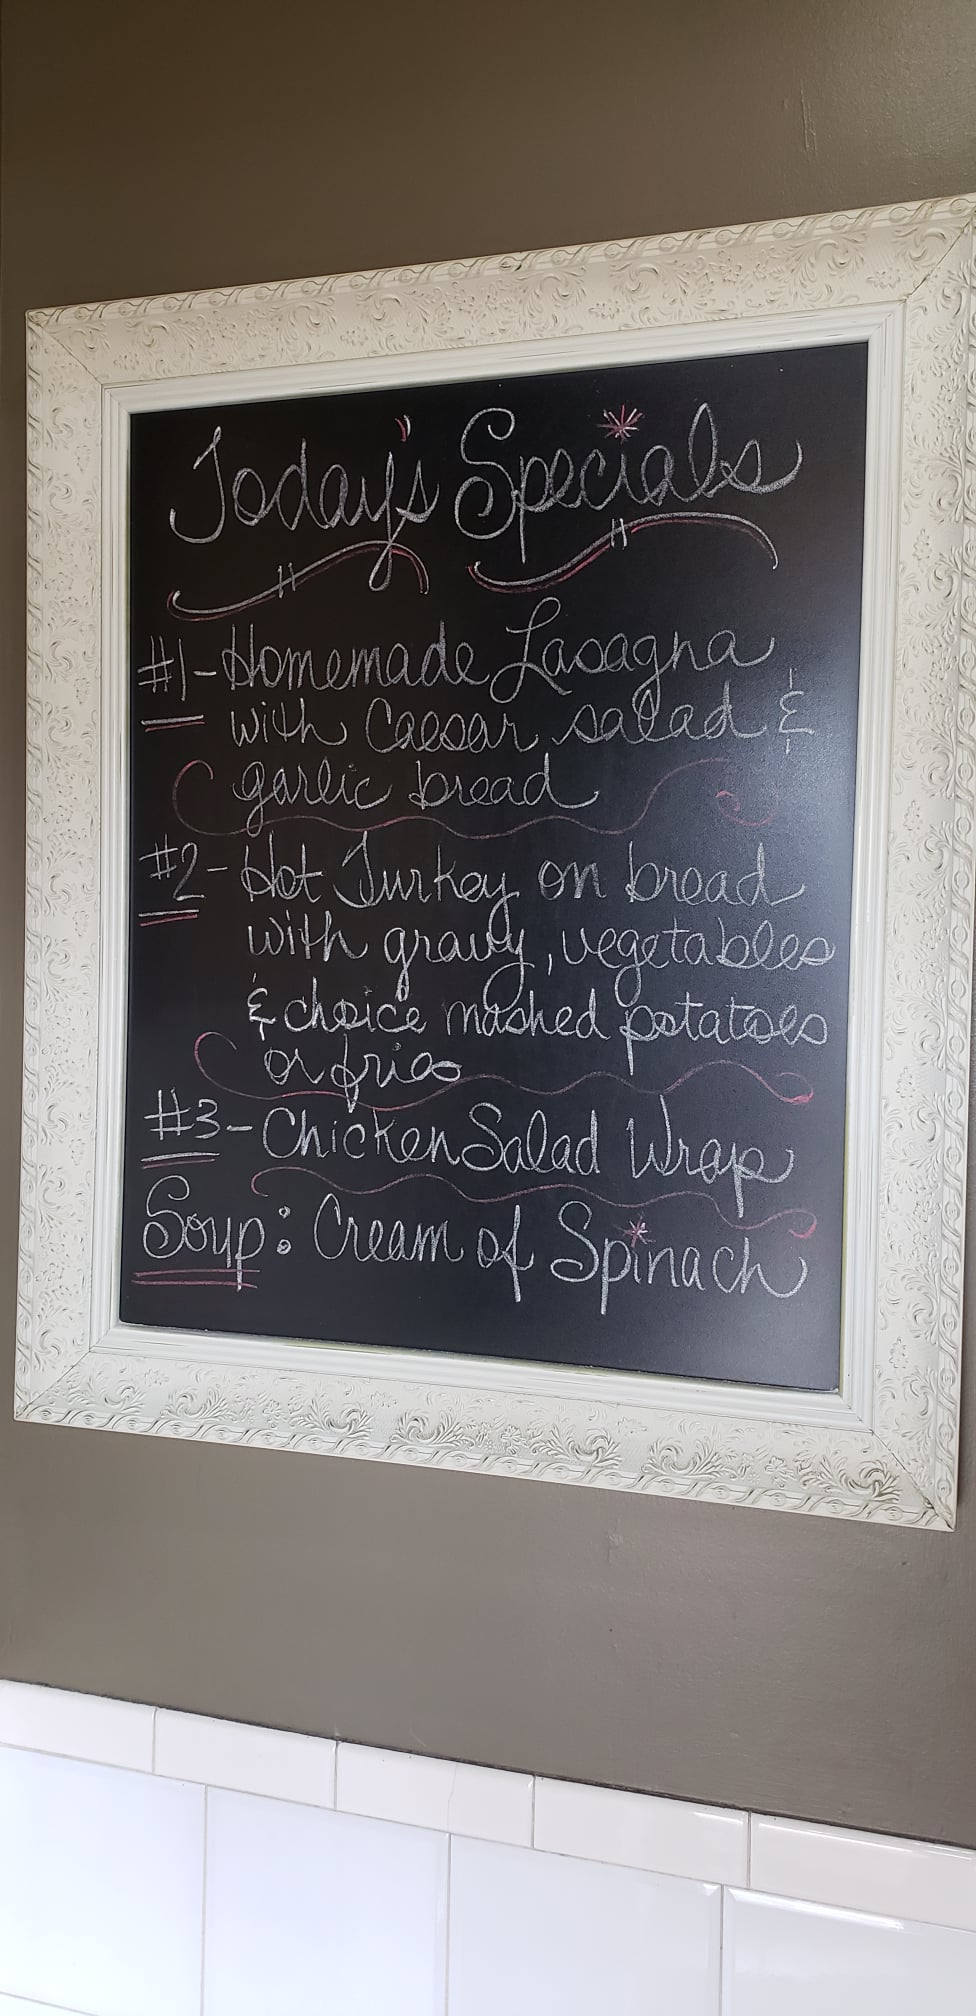 Today's Specials
#1 - Homemade Lasagna
with Caesar salad &
garlic bread
#2 - Hot Turkey on bread
with gravy, vegetables
& choice mashed potatoes
or fries
#3 - Chicken Salad Wrap
Soup: Cream of Spinach